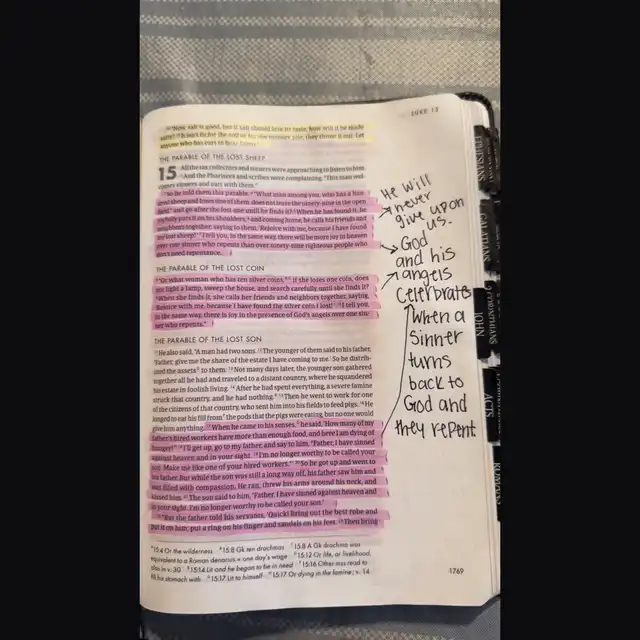 LUKE 15
"Now, salt is good, but if salt should lose its taste, how will it be made
salty? It isn't fit for the soil or for the manure pile; they throw it out. Let
anyone who has ears to hear listen."
THE PARABLE OF THE LOST SHEEP
15 All the tax collectors and sinners were approaching to listen to him.
And the Pharisees and scribes were complaining, "This man wel-
comes sinners and eats with them."
So he told them this parable: "What man among you, who has a hun-
dred sheep and loses one of them, does not leave the ninety-nine in the open
field and go after the lost one until he finds it? When he has found it, he
joyfully puts it on his shoulders, and coming home, he calls his friends and
neighbors together, saying to them, 'Rejoice with me, because I have found
my lost sheep!' I tell you, in the same way, there will be more joy in heaven
over one sinner who repents than over ninety-nine righteous people who
don't need repentance.
THE PARABLE OF THE LOST COIN
"Or what woman who has ten silver coins, if she loses one coin, does
not light a lamp, sweep the house, and search carefully until she finds it?
When she finds it, she calls her friends and neighbors together, saying,
'Rejoice with me, because I have found the silver coin I lost!' I tell you,
in the same way, there is joy in the presence of God's angels over one sin-
ner who repents."
THE PARABLE OF THE LOST SON
He also said, "A man had two sons. 12 The younger of them said to his father,
'Father, give me the share of the estate I have coming to me.' So he distrib-
uted the assets to them. 13 Not many days later, the younger son gathered
together all he had and traveled to a distant country, where he squandered
his estate in foolish living. 14 After he had spent everything, a severe famine
struck that country, and he had nothing. 15 Then he went to work for one
of the citizens of that country, who sent him into his fields to feed pigs. 16 He
longed to eat his fill from the pods that the pigs were eating, but no one would
give him anything. 17 When he came to his senses, he said, 'How many of my
father's hired workers have more than enough food, and here I am dying of
hunger! 18 I'll get up, go to my father, and say to him, "Father, I have sinned
against heaven and in your sight. 19 I'm no longer worthy to be called your
son. Make me like one of your hired workers."' 20 So he got up and went to
his father. But while the son was still a long way off, his father saw him and
was filled with compassion. He ran, threw his arms around his neck, and
kissed him. 21 The son said to him, 'Father, I have sinned against heaven and
in your sight. I'm no longer worthy to be called your son.'
22 "But the father told his servants, 'Quick! Bring out the best robe and
put it on him; put a ring on his finger and sandals on his feet. 23 Then bring
15:4 Or the wilderness 15:8 Gk ten drachmas 15:8 A Gk drachma was
equivalent to a Roman denarius = one day's wage 15:12 Or life, or livelihood,
also in v. 30 15:14 Lit and he began to be in need 15:16 Other mss read to
fill his stomach with 15:17 Lit to himself 15:17 Or dying in the famine; v. 14
1769
He will
never
give upon
us.
God
and his
angels
celebrates
when a
sinner
turns
back to
God and
they repent
EPHESIANS
GALATIANS
CORINTHIANS
JOHN
ACTS
ROMANS